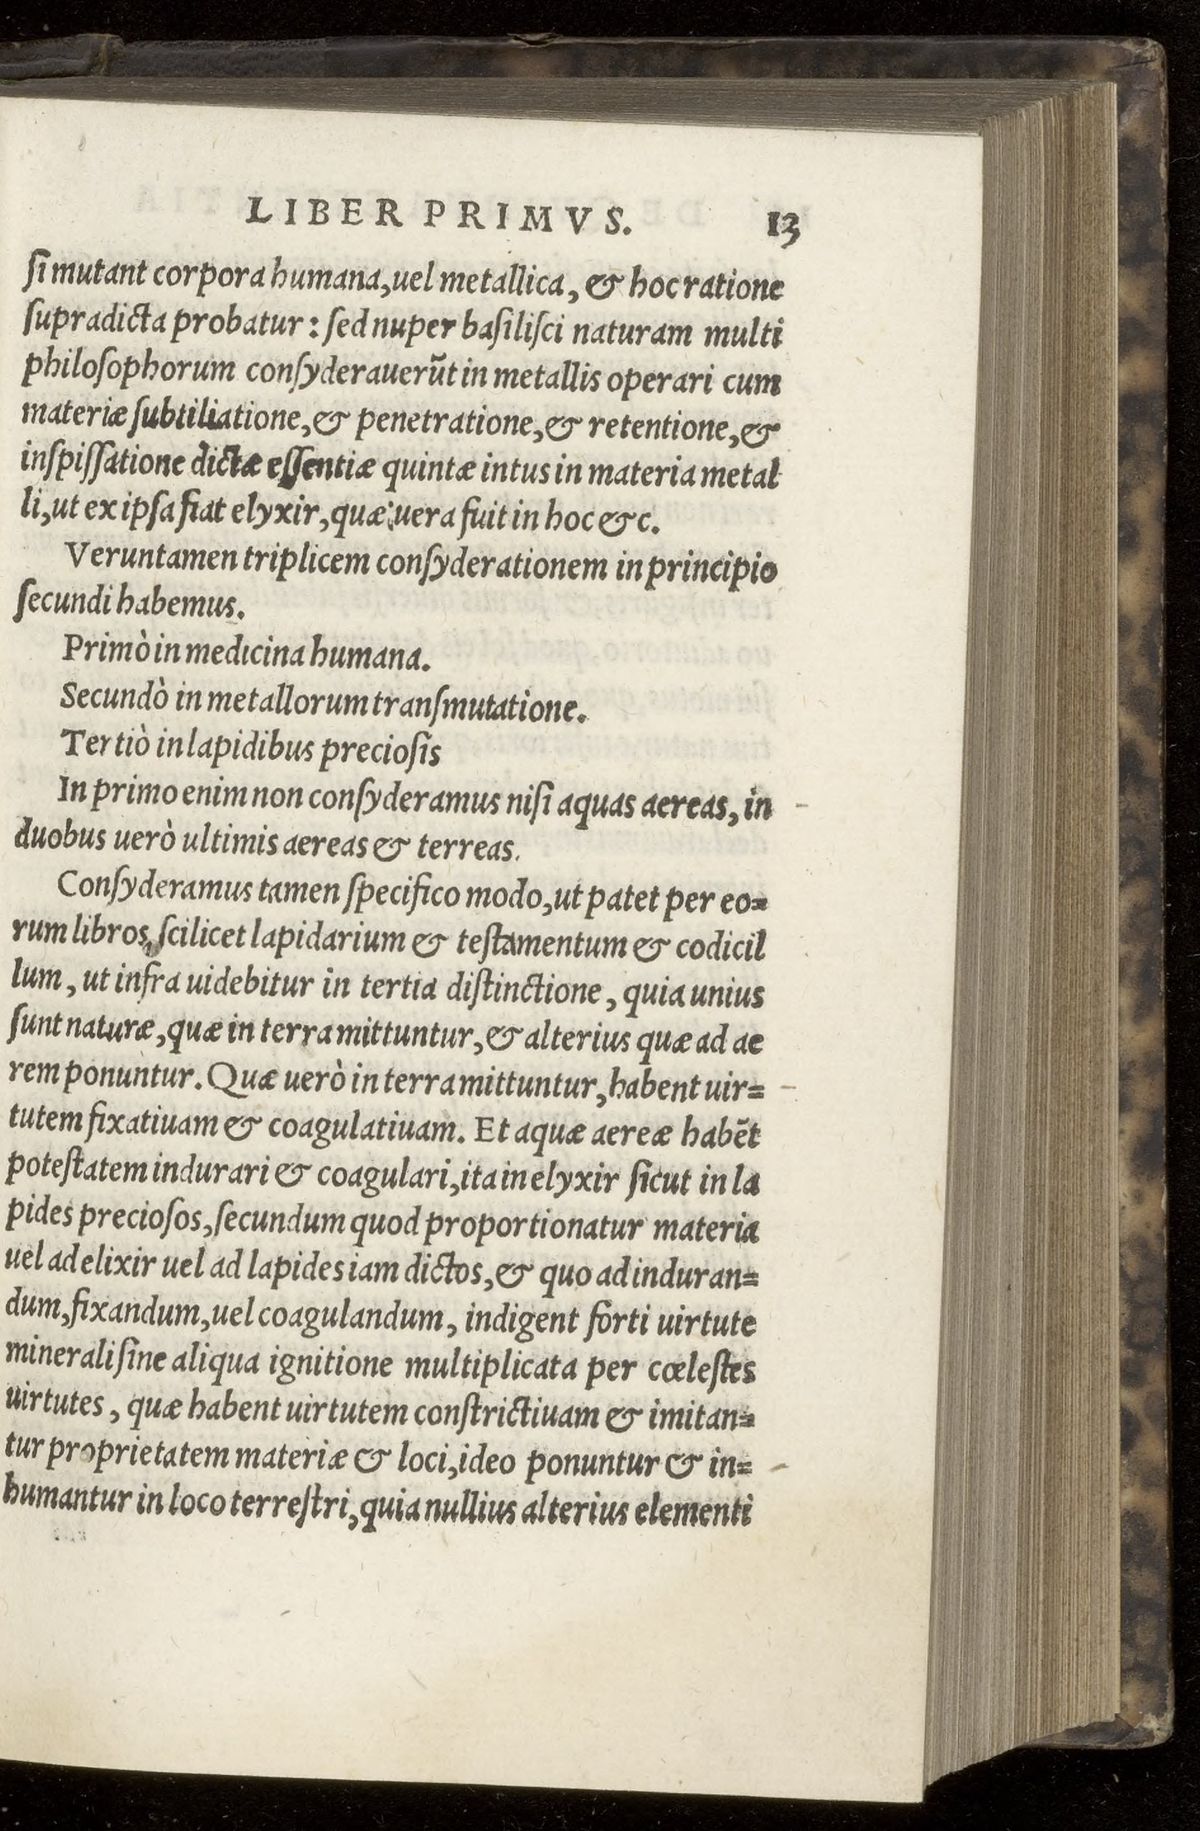 LIBER PRIMVS. 13
ſi mutant corpora humana, uel metallica, & hoc ratione
ſupradicta probatur: ſed nuper baſiliſci naturam multi
philoſophorum conſyderauerũt in metallis operari cum
materiæ ſubtiliatione, & penetratione, & retentione, &
inſpiſſatione dictæ eſſentiæ quintæ intus in materia metal
li, ut ex ipſa fiat elyxir, quæ uera fuit in hoc &c.
Veruntamen triplicem conſyderationem in principio
ſecundi habemus.
Primò in medicina humana.
Secundò in metallorum tranſmutatione.
Tertiò in lapidibus precioſis
In primo enim non conſyderamus niſi aquas aereas, in
duobus uerò ultimis aereas & terreas.
Conſyderamus tamen ſpecifico modo, ut patet per eo=
rum libros, ſcilicet lapidarium & teſtamentum & codicil
lum, ut infra uidebitur in tertia diſtinctione, quia unius
ſunt naturæ, quæ in terra mittuntur, & alterius quæ ad ae
rem ponuntur. Quæ uerò in terra mittuntur, habent uir=
tutem fixatiuam & coagulatiuam. Et aquæ aereæ habẽt
poteſtatem indurari & coagulari, ita in elyxir ſicut in la
pides precioſos, ſecundum quod proportionatur materia
uel ad elixir uel ad lapides iam dictos, & quo ad induran=
dum, fixandum, uel coagulandum, indigent forti uirtute
minerali ſine aliqua ignitione multiplicata per cœleſtes
uirtutes, quæ habent uirtutem conſtrictiuam & imitan=
tur proprietatem materiæ & loci, ideo ponuntur & in=
humantur in loco terreſtri, quia nullius alterius elementi